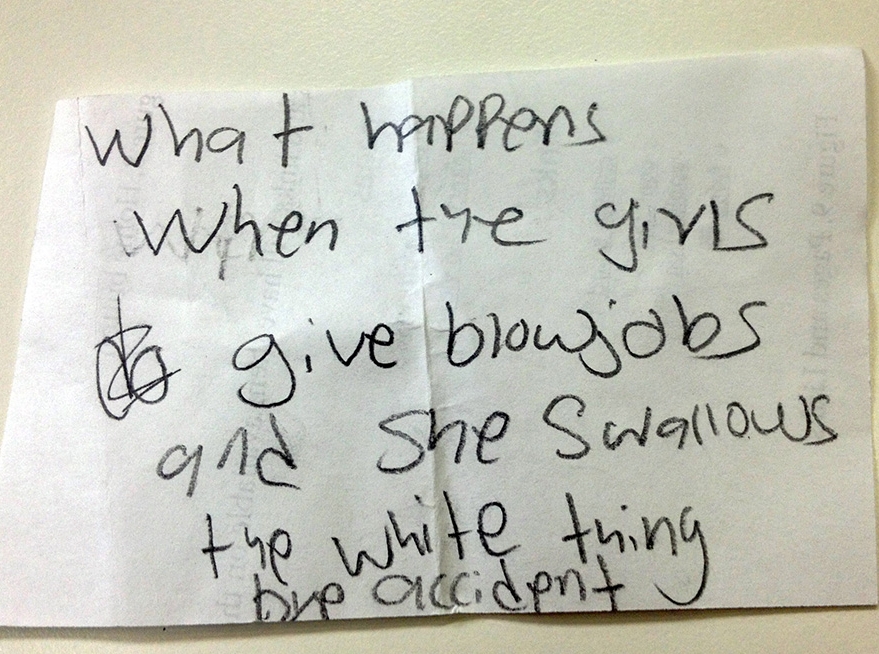 What happens
when the girls
give blowjobs
and she swallows
the white thing
bye accident